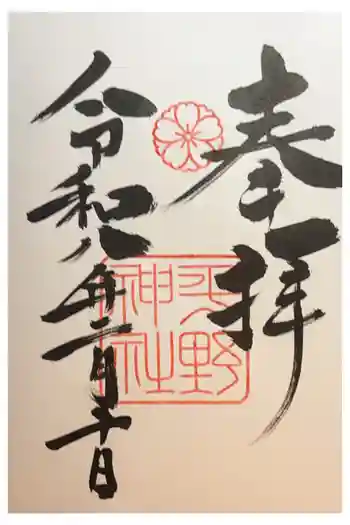 奉拝
平野
神社
令和八年二月十日